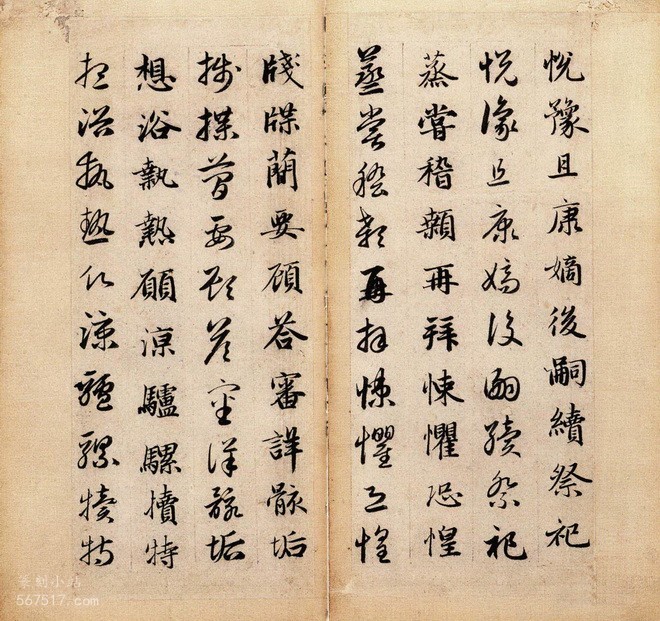 悅豫且康嫡後嗣續祭祀
悅豫且康嫡後嗣續祭祀
蒸嘗稽顙再拜悚懼恐惶
蒸嘗稽顙再拜悚懼恐惶
牋牒蕳要顧荅審詳骸垢
牋牒蕳要顧荅審詳骸垢
想浴執熱願涼驢騾犢特
想浴執熱願涼驢騾犢特
567517.com